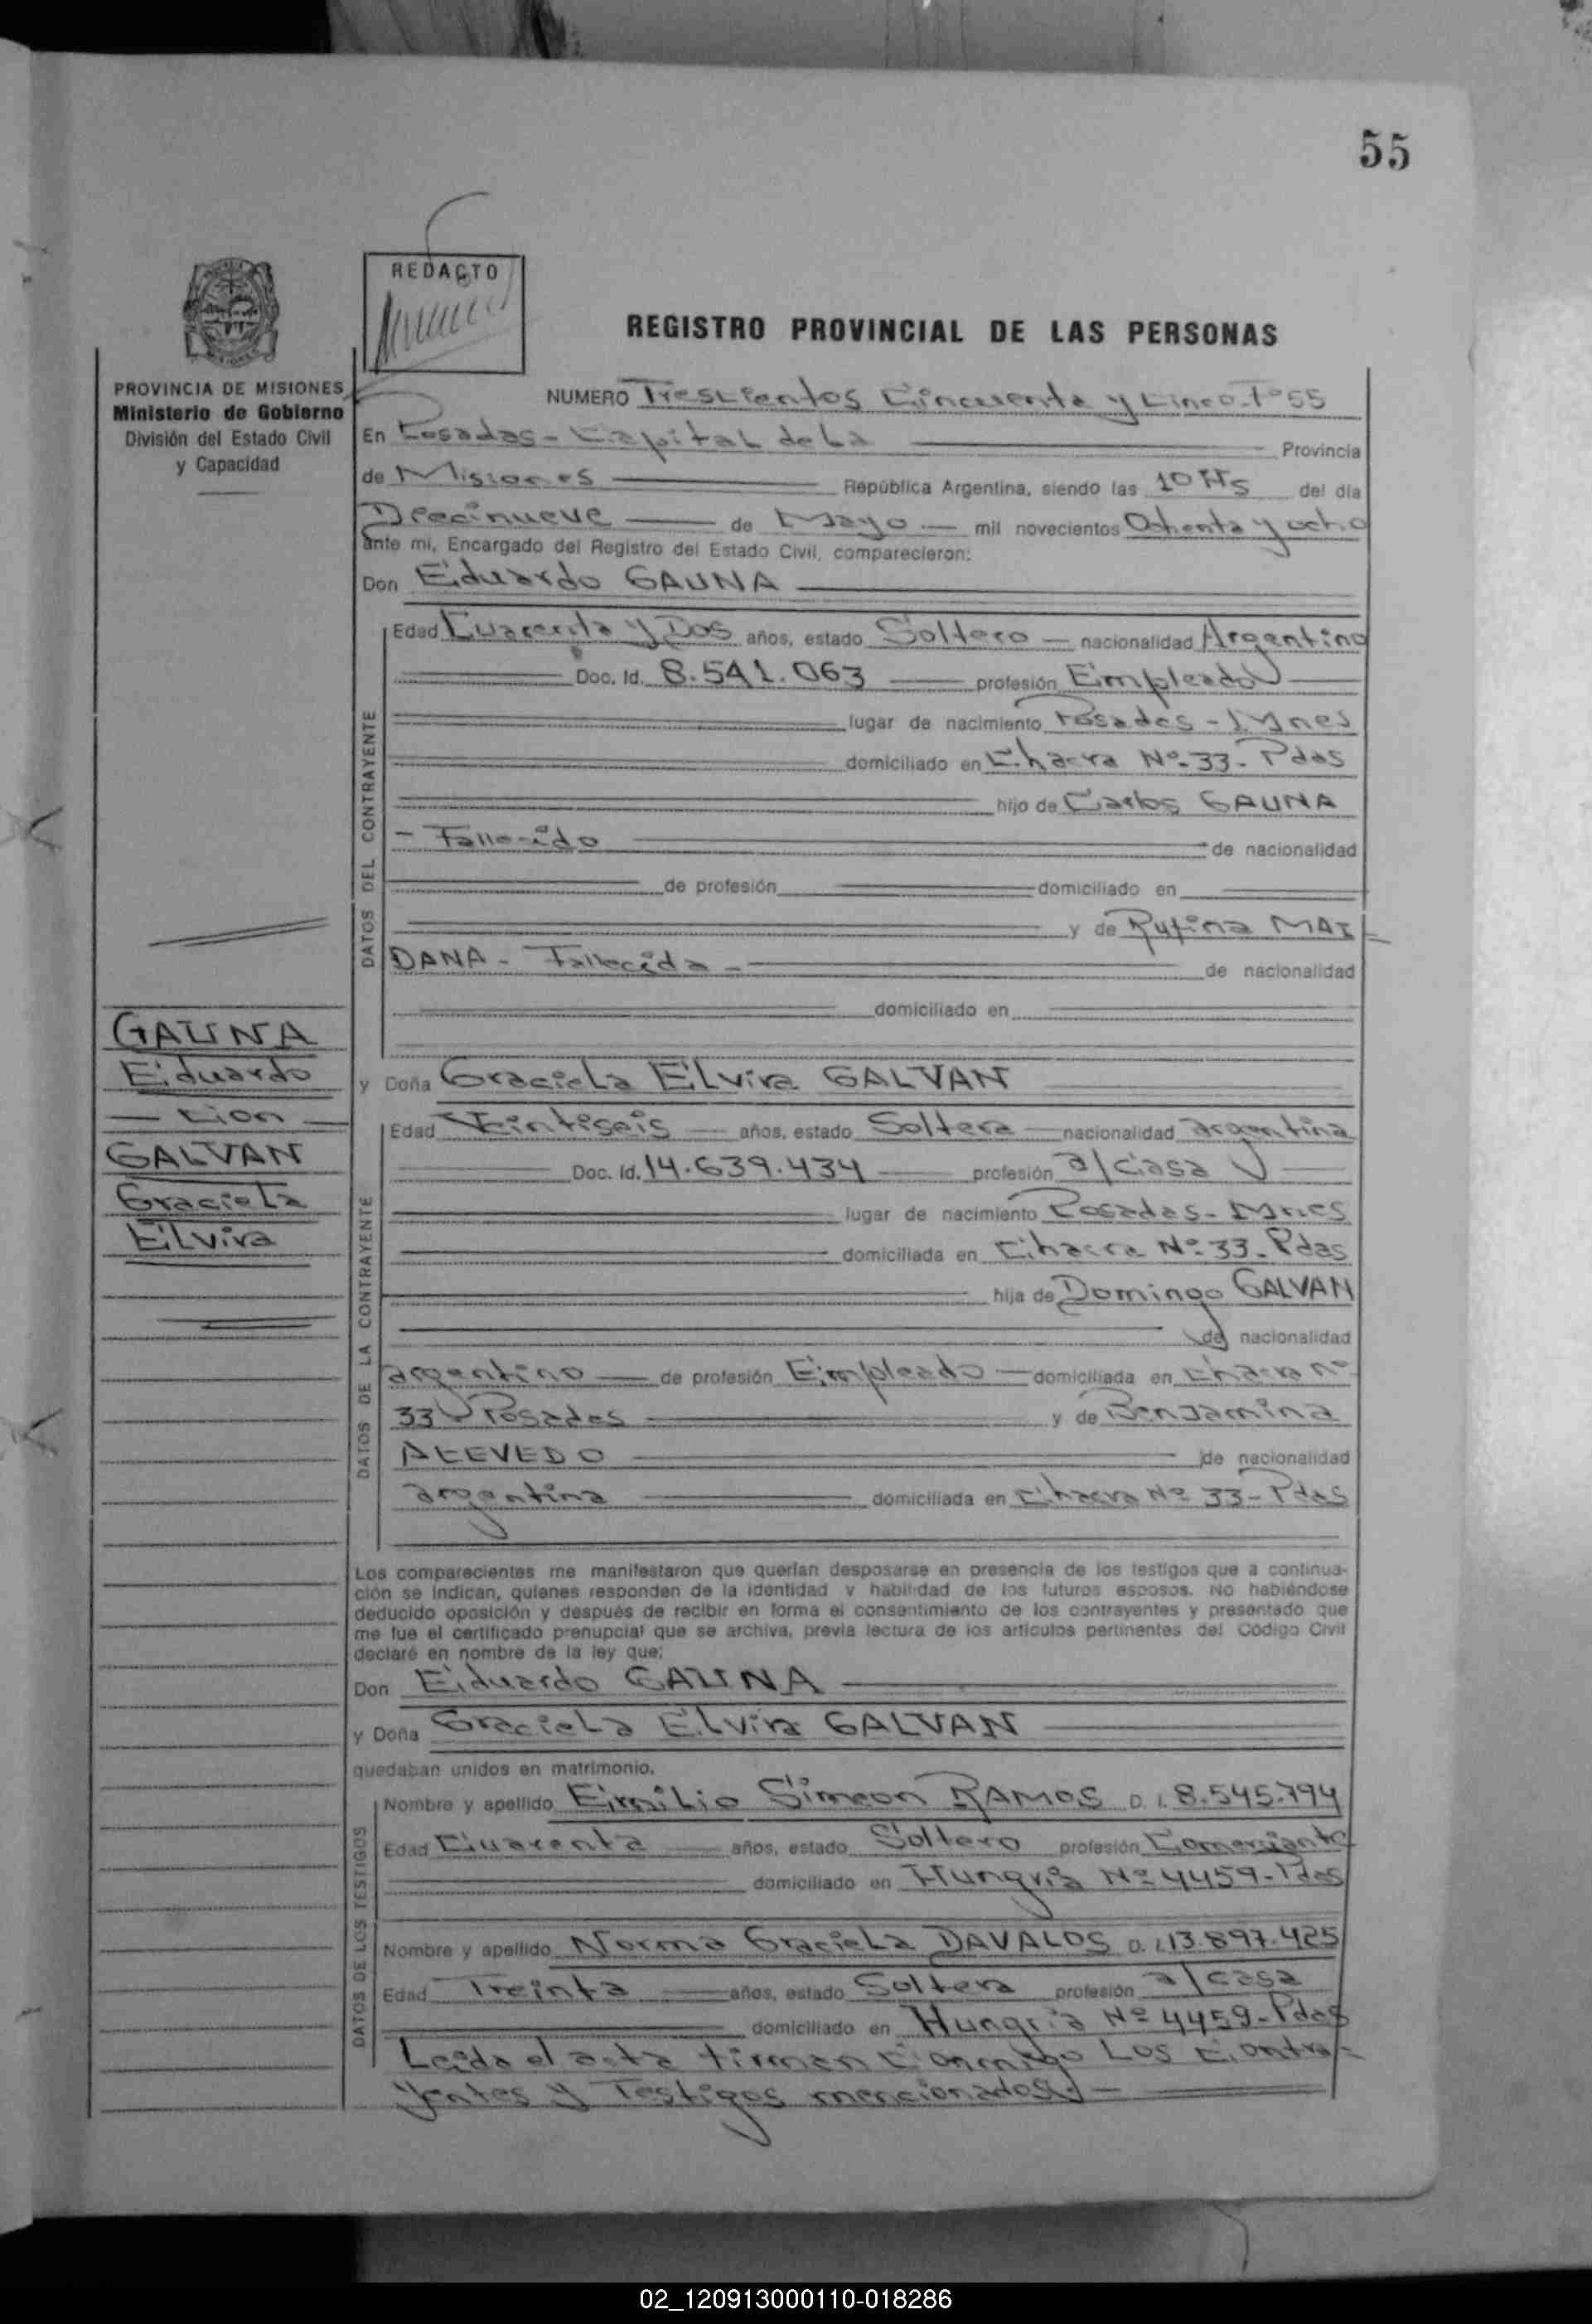 55
REDACTO
REGISTRO PROVINCIAL DE LAS PERSONAS
PROVINCIA DE MISIONES
Ministerio de Gobierno
División del Estado Civil
y Capacidad
NUMERO Trescientos Cincuenta y Cinco - Fº 55
En Posadas - Capital de La Provincia
de Misiones República Argentina, siendo las 10 Hs del día
Diecinueve de Mayo mil novecientos Ochenta y ocho
ante mí, Encargado del Registro del Estado Civil, comparecieron:
Don Eduardo GAUNA
DATOS DEL CONTRAYENTE
Edad Cuarenta y Dos años, estado Soltero nacionalidad Argentino
Doc. Id. 8.541.063 profesión Empleado
lugar de nacimiento Posadas - Mnes
domiciliado en Chacra Nº 33 - Pdas
hijo de Carlos GAUNA
- Fallecido de nacionalidad
de profesión domiciliado en
y de Rufina MAI
DANA - Fallecida - de nacionalidad
domiciliado en
GAUNA
Eduardo
con
GALVAN
Graciela
Elvira
y Doña Graciela Elvira GALVAN
DATOS DE LA CONTRAYENTE
Edad Veintiseis años, estado Soltera nacionalidad argentina
Doc. Id. 14.639.434 profesión a/casa
lugar de nacimiento Posadas - Mnes
domiciliada en Chacra Nº 33 - Pdas
hija de Domingo GALVAN
de nacionalidad
argentino de profesión Empleado domiciliada en Chacra Nº
33 - Posadas y de Benjamina
ACEVEDO de nacionalidad
argentina domiciliada en Chacra Nº 33 - Pdas
Los comparecientes me manifestaron que querían desposarse en presencia de los testigos que a continua-
ción se indican, quienes responden de la identidad y habilidad de los futuros esposos. No habiéndose
deducido oposición y después de recibir en forma el consentimiento de los contrayentes y presentado que
me fue el certificado prenupcial que se archiva, previa lectura de los artículos pertinentes del Código Civil
declaré en nombre de la ley que:
Don Eduardo GAUNA
y Doña Graciela Elvira GALVAN
quedaban unidos en matrimonio.
DATOS DE LOS TESTIGOS
Nombre y apellido Emilio Simeon RAMOS D. I. 8.545.794
Edad Cuarenta años, estado Soltero profesión Comerciante
domiciliado en Hungria Nº 4459 - Pdas
Nombre y apellido Norma Graciela DAVALOS D. I. 13.897.425
Edad Treinta años, estado Soltera profesión a/casa
domiciliado en Hungria Nº 4459 - Pdas
Leida el acta firman Conmigo Los Contra-
yentes y Testigos mencionados. -
02_120913000110-018286